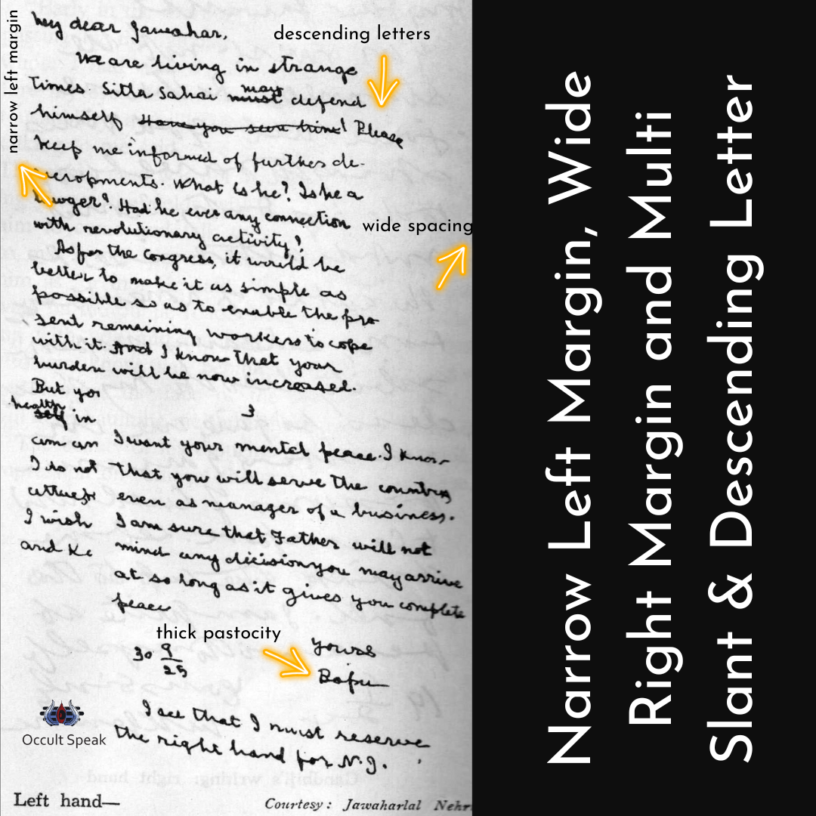 narrow left margin
descending letters
My dear Jawahar,
We are living in strange
may
times. Sitla Sahai must defend
himself Have you seen him! Please
keep me informed of further de-
velopments. What is he? Is he a
Had he ever any connection
wide spacing
with revolutionary activity?
As for the congress, it would be
better to make it as simple as
possible so as to enable the pre
sent remaining workers to cope
with it. And I know that your
burden will be now increased.
But you
health
in
3
I want your mental peace. I know
I do not
that you will serve the country
even as manager of a business.
I wish
I am sure that Father will not
and
mind any decision you may arrive
at so long as it gives you complete
peace
thick pastocity
30 9/25
yours
Bapu
I see that I must reserve
the right hand for
Occult Speak
Left hand—
Courtesy: Jawaharlal Nehr
Narrow Left Margin, Wide
Right Margin and Multi
Slant & Descending Letter